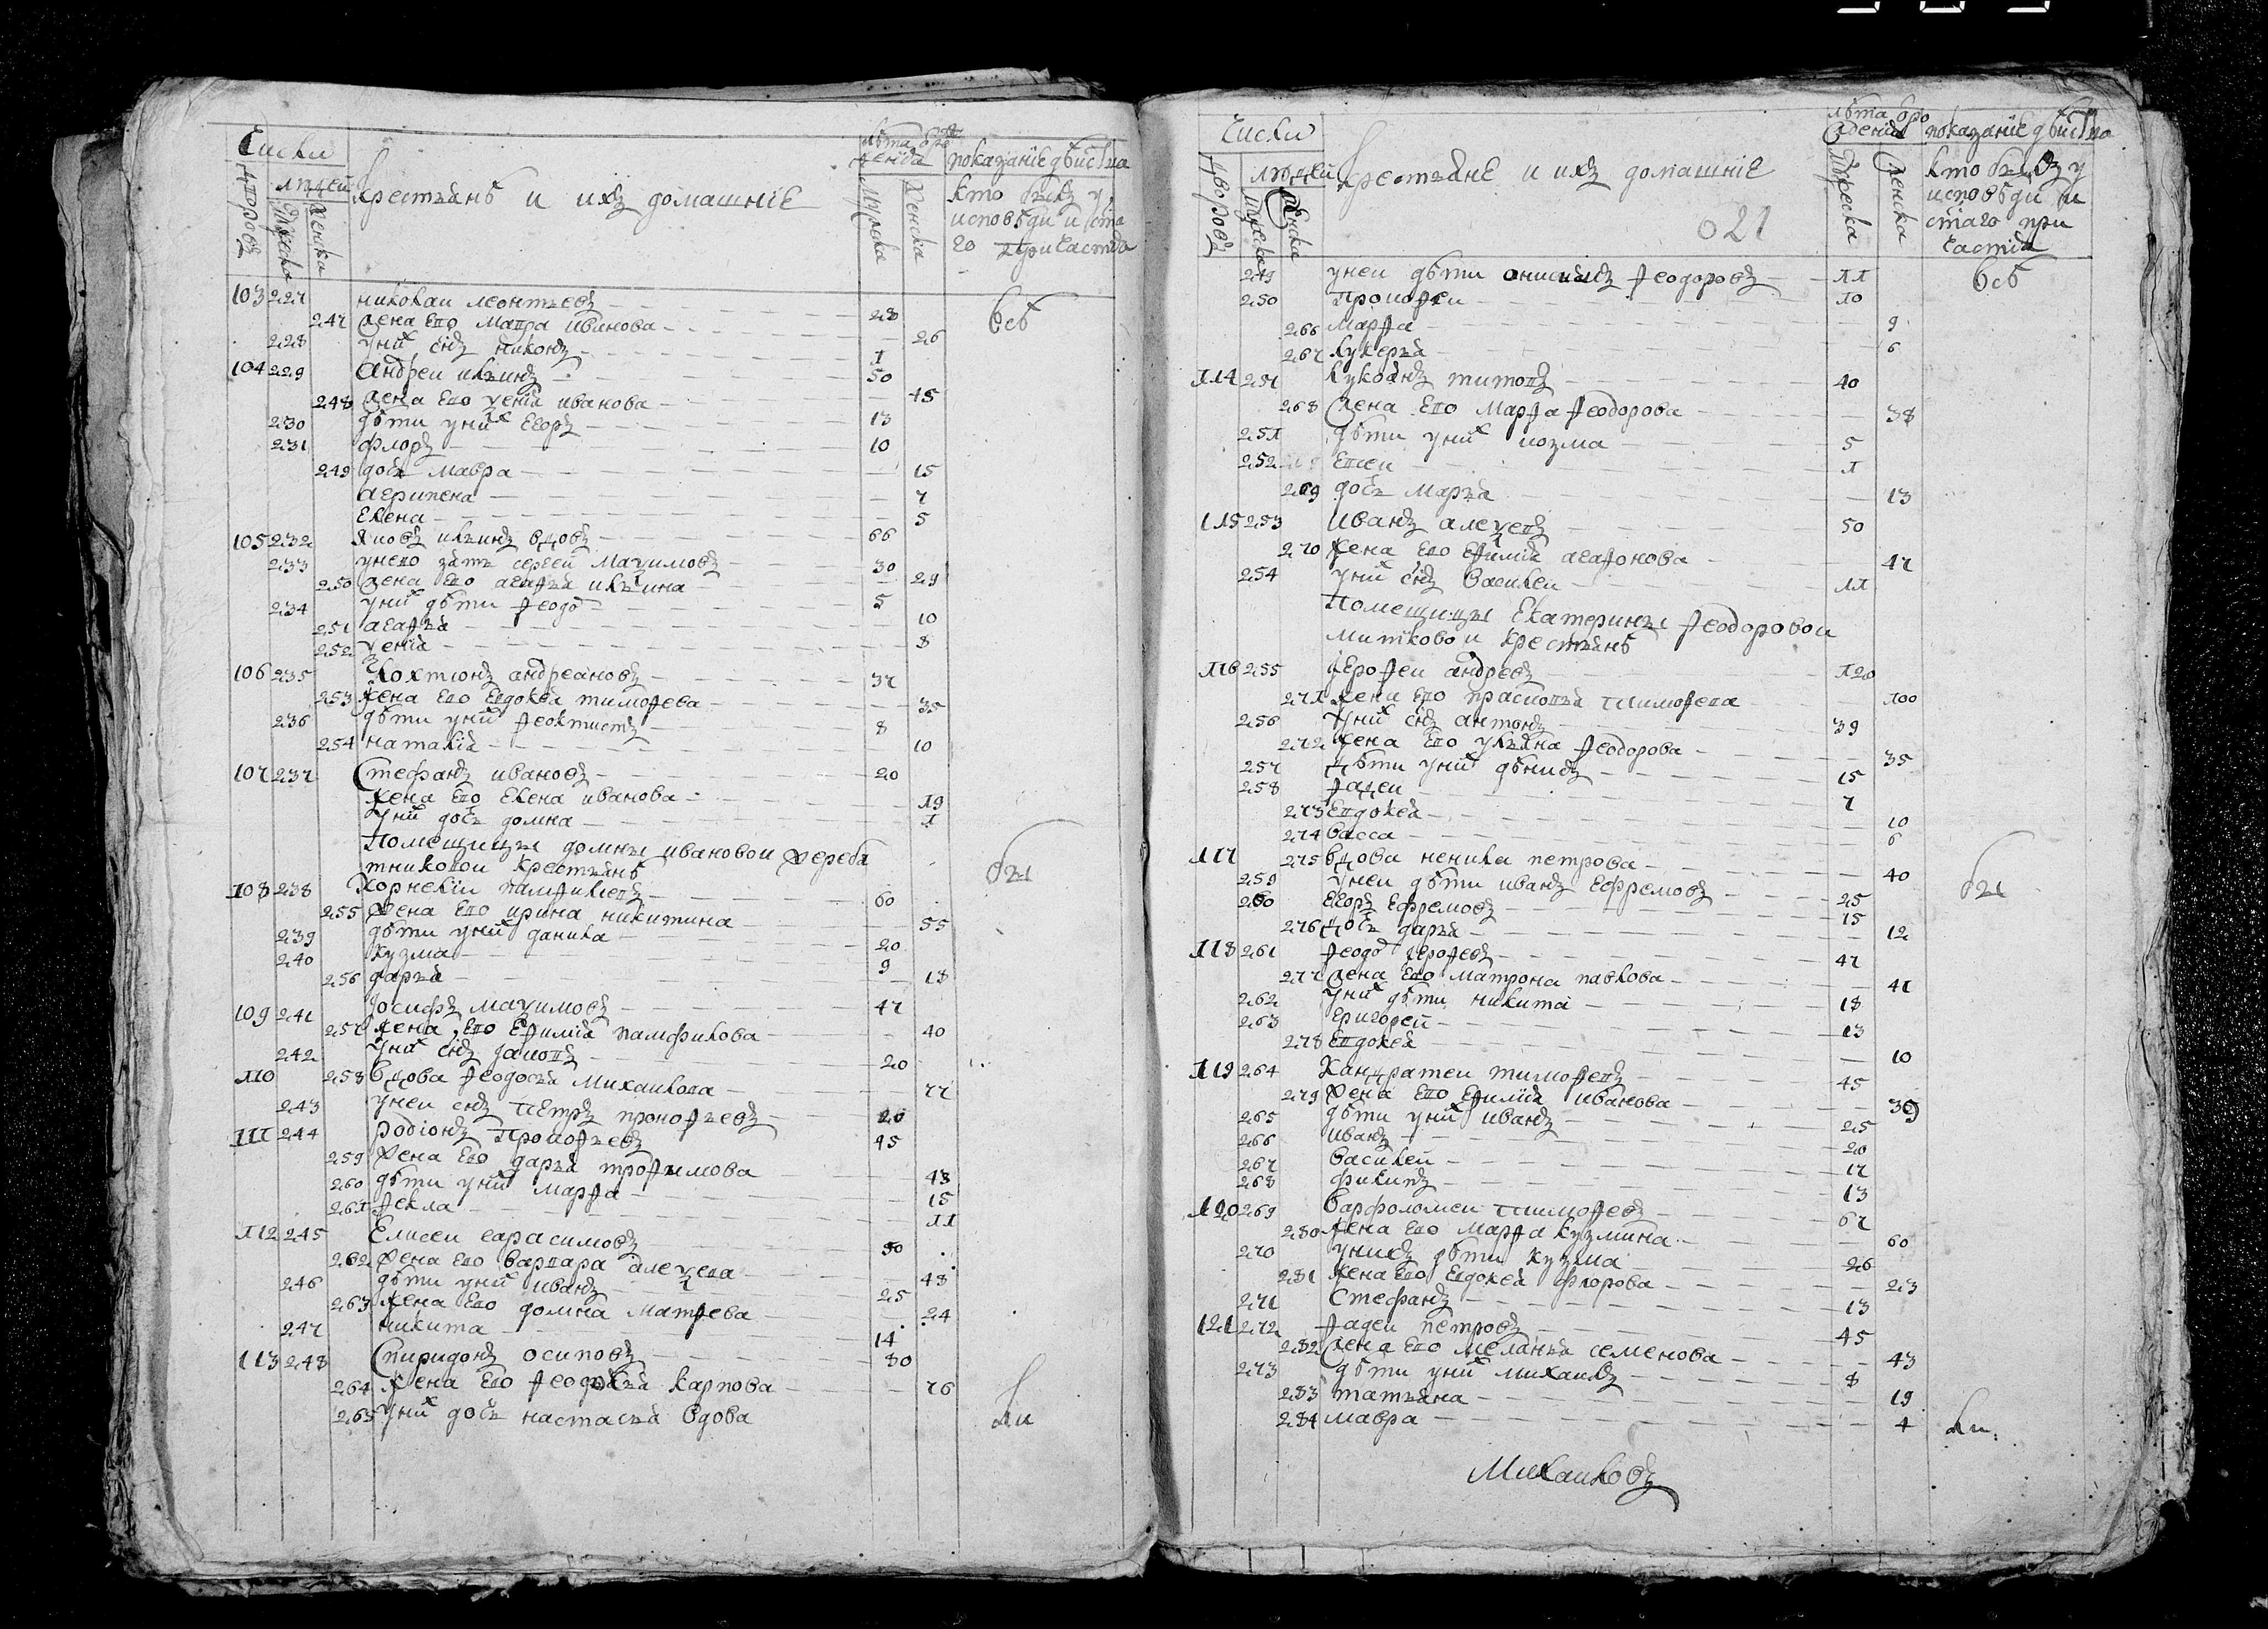 Числи
дворовъ
людей
мужеска
женска
крестьянѣ и ихъ домашніе
лѣта от рождения
мужска
женска
показаніе дѣйства
кто былъ у
исповѣди и свята
го причастія
103 227 николаи леонтьевъ 28
247 жена Ево Мавра иванова 26
228 уних снъ никонъ 1
104 229 Андреи ильинъ 50
248 жена Ево ѯенія иванова 45
230 дѣти уних Егоръ 13
231 флоръ 10
249 дочь мавра 15
агрипена 7
Елена 5
105 232 Яковъ ильинъ вдовъ 66
233 унево зять сергеи Маѯимовъ 30
250 жена ево агафья ильина 29
234 уних дѣти Ѳеодо 5
251 агафья 10
252 ѯенія 8
106 235 андреановъ 37
253 жена Ево Евдокея тимоѳева 35
236 дѣти уних Ѳеоктистъ 8
254 наталія 10
107 237 Стефанъ ивановъ 20
жена Ево Елена иванова 19
уних дочь домна 1
Помещицы домны ивановои жереб
тниковои крестьянѣ
108 238 Корнелии памфилевъ 60
255 жена Ево ирина никитина 55
239 дѣти уних данила 20
240 кузма 9
256 дарья 18
109 241 Іосифъ маѯимовъ 47
257 жена Ево Еѳимія памфилова 40
242 уних снъ іаковъ 20
110 258 вдова Ѳеодосья Михаилова 77
243 унеи снъ Петръ прокоѳьевъ 20
111 244 родіонъ Прокоѳьевъ 45
259 жена Ево дарья троѳимова 43
260 дѣти уних марѳа 15
261 Ѳекла 11
112 245 Елисеи гарасимовъ 50
262 жена Ево варвара алеѯева 48
246 дѣти уних иванъ 25
263 жена Ево домна матѳева 24
247 никита 14
113 248 Спиридонъ осиповъ 80
264 жена Ево карпова 76
265 уних дочь настасья вдова
всѣ
был
ли
Числи
дворовъ
людей
мужеска
женска
крестьяне и ихъ домашніе
021
лѣта от ро
жденія
мужеска
женска
показаніе дѣйства
кто былъ у
исповѣди и
стаго при
частія
249 унеи дѣти анисимъ Ѳеодоровъ 11
250 Прокоѳеи 10
266 марѳа 9
267 лукерья 6
114 251 лукоянъ титовъ 40
268 жена Ево Марѳа Ѳеодорова 38
251 дѣти уних козма 5
252 Евсеи 1
269 дочь марья 13
115 253 иванъ алеѯевъ 50
270 жена Ево Еѳимія агаѳонова 47
254 уних снъ василеи 11
Помещицы Екатерины Ѳеодоровои
митковои крестьянѣ
116 255 Іероѳеи андреевъ 120
271 жена Ево прасковья тимоѳева 100
256 уних снъ антонъ 39
272 жена Ево ульяна Ѳеодорова 35
257 дѣти уних дѣнисъ 15
258 Ѳадеи 7
273 Евдокея 10
274 васса 6
117 275 вдова ненила петрова 40
259 унеи дѣти иванъ Ефремовъ 25
260 Егоръ Ефремовъ 15
276 дочь дарья 12
118 261 Ѳеодо Іероѳевъ 47
277 жена Ево Матрона павлова 41
262 уних дѣти никита 18
263 григореи 13
278 Евдокея 10
119 264 Кандратеи тимоѳевъ 45
279 жена Ево Еѳимія иванова 39
265 дѣти уних иванъ 25
266 иванъ 20
267 василеи 17
268 филипъ 13
120 269 варфоломеи тимоѳевъ 67
280 жена Ево марѳа кузмина 60
270 унихъ дѣти кузма 26
281 жена Ево Евдокея флорова 23
271 Стефанъ 13
121 272 Ѳадеи петровъ 45
282 жена Ево меланья семенова 43
273 дѣти уних михаилъ 8
283 татьяна 19
284 мавра 4
всѣ
был
ли
Михаиловъ